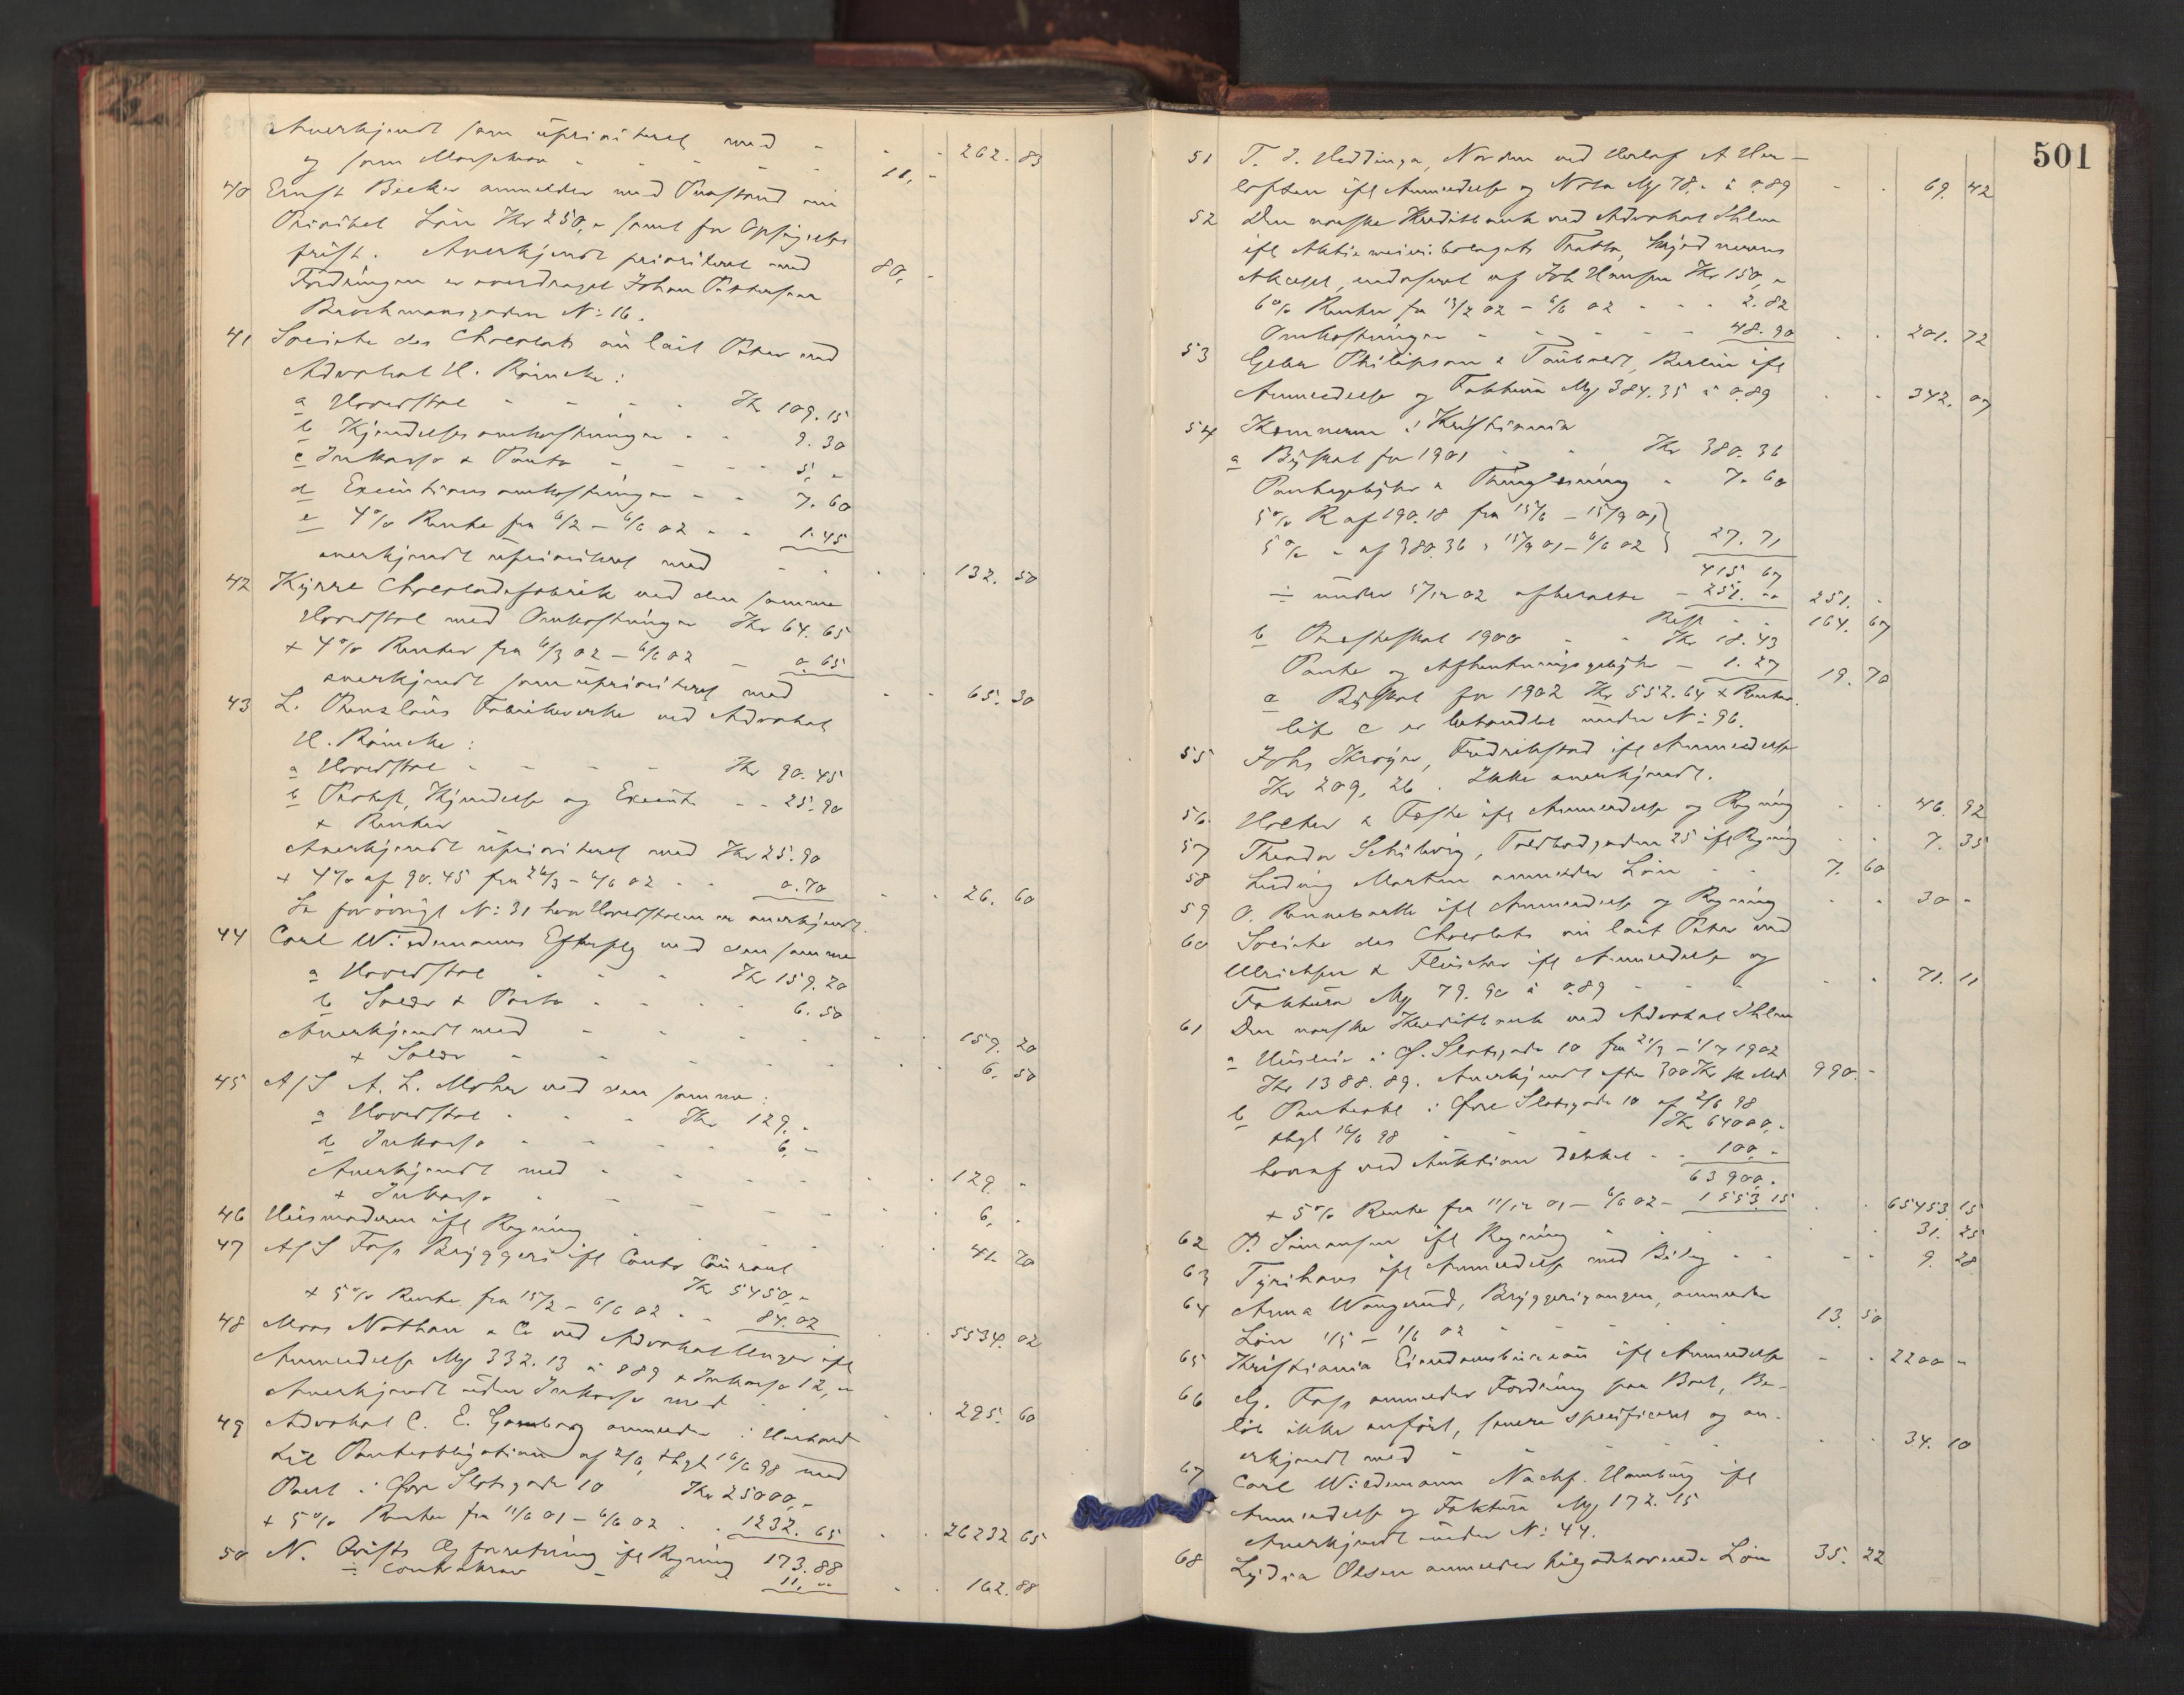 Anerkjendt som uprioriteret med - - - 262. 83
og som Massekrav - - - - 11, -
40 Ernst Becker anmelder med Paastand om
Prioritet Løn Kr 250,- samt for Opsigelses
frist. Anerkjendt prioriteret med 80, -
Fordringen er overdraget Johan Pettersen
Brochmansgaden No: 16.
41 Societe des Chocolats au lait Peter ved
Advokat H. Röincke:
a Hovedstol - - - - Kr 109. 15
b Kjendelses omkostninger - - 9. 30
c Inkasso & Porto - - - - 5, -
d Executions omkostninger - - 7. 60
e 4% Rente fra 6/2 - 6/6 02 - - 1. 45
anerkjendt uprioriteret med - - - - 132. 50
42 Kyrre Chocoladefabrik ved den samme
Hovedstol med Omkostninger Kr 64. 65
+ 4% Renter fra 6/3 02 - 6/6 02 - 0. 65
anerkjendt som uprioriteret med - - 65. 30
43 L. Fabrikverke ved Advokat
H. Röincke:
a Hovedstol - - - - Kr 90. 45
b Protest, Kjendelse og Execut. - - 25. 90
+ Renter
Anerkjendt uprioriteret med Kr 25. 90
+ 4% af 90. 45 fra 26/3 - 6/6 02 - - 0. 70 - - 26. 60
Se forøvrigt No: 31 hvor Hovedstolen er anerkjendt.
44 Carl Wiedemanns Efterflg ved den samme
a Hovedstol - - - Kr 159. 20
b Salær & Porto - - - - 6. 50
Anerkjendt med - - - - - - 159. 20
+ Salær - - - - - - 6. 50
45 A/S A. L. Mohr ved den samme:
a Hovedstol - - - Kr 129. -
b Inkasso - - - - 6, -
Anerkjendt med - - - - - - 129. -
+ Inkasso - - - - - - 6. -
46 Husmoderen ifl Regning - - - - - 41. 70
47 A/S Foss Bryggeri ifl Conto Courant
Kr 5450, -
+ 5% Rente fra 15/2 - 6/6 02 - - 84. 02 - - 5534. 02
48 Moos Nathan & Co ved Advokat Unger ifl
Anmeldelse Mg 332. 13 á 889 + Inkasso 12, -
Anerkjendt uden Inkasso med - - - - 295. 60
49 Advokat C. E. anmelder i Henhold
til Panteobligation af 2/6, thgl 16/6 98 med
Pant i Øvre Slotsgade 10 Kr 25000, -
+ 5% Renter fra 11/6 01 - 6/6 02 - - 1232. 65 - - 26232 65
50 N. Qvists Eg forretning ifl Regning 173. 88
÷ Contrakrav - 11, - - - 162. 88
501
51 T. J. Heddinga, Norden ved Herlof A Her-
lofsen ifl Anmeldelse og Nota Mg 78. - á 0.89 - - 69. 42
52 Den norske Kreditbank ved Advokat Ihlen
ifl Aktiemeieribolagets Tratte, Skjødnerens
Accept, endosseret af Joh Hansen Kr 150, -
6% Renter fra 13/2 02 - 6/6 02 - - - 2. 82
Omkostninger - - - - - 48. 90 - - 201. 72
53 Gebr Philipson & Taubwedt, Berlin ifl
Anmeldelse og Faktura Mg 384. 35 á 0.89 - - 342. 07
54 Kemneren i Kristiania
a Byskat for 1901 - - Kr 380. 36
Pantegebyr & Thinglæsning - 7. 60
5% R af 190. 18 fra 15/6 - 15/9 01
5% - af 380. 36 - 15/9 01 - 6/6 02 } 27. 71
415. 67
÷ under 5/12 02 afbetalte - 251. - 251. -
Rest - - 164. 67
b Presteskat 1900 - - Kr 18. 43
Pante og Afhentningsgebyr - 1. 27 19. 70
c Byskat for 1902 Kr 552. 64 + Renter.
lit c er behandlet under No: 96.
55 Johs Krøyer, Fredrikstad ifl Anmeldelse
Kr 209. 26. Ikke anerkjendt.
56 Holter & Foshe ifl Anmeldelse og Regning - - 46. 92
57 Theodor Schilvig, Toldbodgaden 25 ifl Regning - - 7. 35
58 Ludvig Morten anmelder Løn - - 7. 60
59 O. ifl Anmeldelse og Regning - - 30 -
60 Societe des Chocolats au lait Peter ved
Ulrichsen & Fleischer ifl Anmeldelse og
Faktura Mg 79. 90 á 0.89 - - - - - 71. 11
61 Den norske Kreditbank ved Advokat Ihlen
a Husleie i Ø. Slotsgade 10 fra 21/3 - 1/7 1902
Kr 1388. 89. Anerkjendt efter 300 Kr pr Md 990. -
b Panteobl i Øvre Slotsgade 10 af 2/6 98
thgl 16/6 98 - - - Kr 64000, -
hvoraf ved Auktion dækket - - 100, -
63900. -
+ 5% Rente fra 11/12 01 - 6/6 02 - 1553. 15 - - 65453. 15
62 P. Simonsen ifl Regning - - - - 31. 25
63 Tyrihans ifl Anmeldelse med Bilag - - - - 9. 28
64 Anna Wangerud, Bryggerigangen, anmelder
Løn 1/5 - 1/6 02 - - - - 13. 50
65 Kristiania Eiendomsbureau ifl Anmeldelse - - 2200 -
66 G. Foss anmelder Fordring paa Boet, Be-
løb ikke anført, senere specificeret og an-
erkjendt med - - - - - - 34. 10
67 Carl Wiedemann Nachf. Hamburg ifl
Anmeldelse og Faktura Mg 172. 15
Anerkjendt under No: 44.
68 Lydia Olsen anmelder tilgodehavende Løn 35. 22